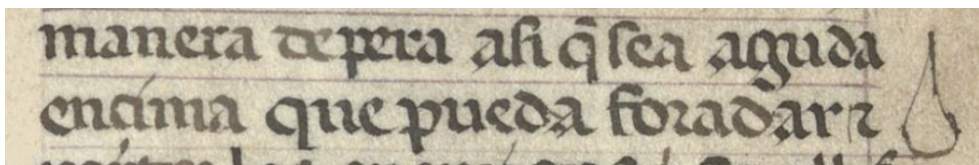 manera de pera asi q̄ sea aguda
encima que pueda foradar ⁊